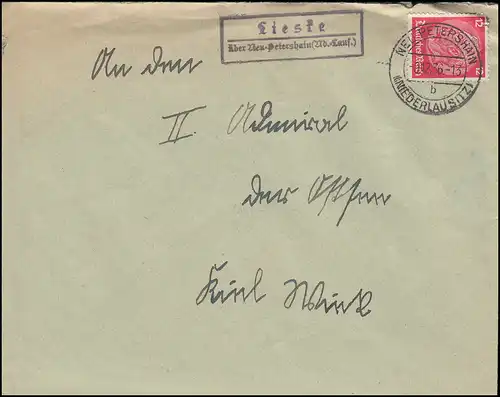 Lieske
über Neu-Petershain (Nd. Laus.)
12 12
Deutsches Reich
NEU PETERSHAIN
6-13
b
(NIEDERLAUSITZ)
An den
II. Admiral
der Ostsee
Kiel Wiek